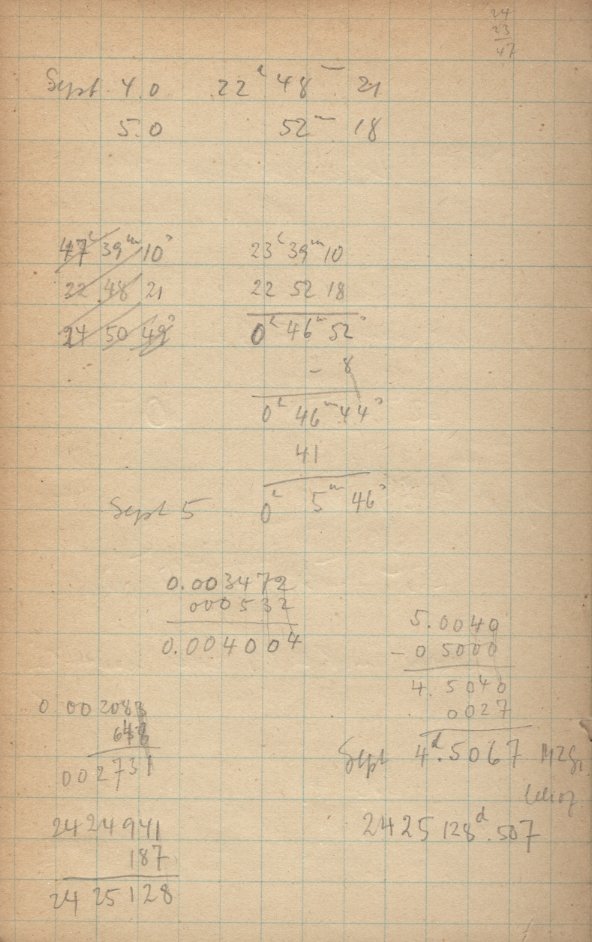 24
23
47
Sept. 4.0 22ʰ 48ᵐ 21
5.0 52ᵐ 18
47ʰ 39ᵐ 10ˢ
22 48 21
24 50 49ˢ
23ʰ 39ᵐ 10
22 52 18
0ʰ 46ᵐ 52ˢ
- 8
0ʰ 46ᵐ 44ˢ
41
Sept 5 0ʰ 5ᵐ 46ˢ
0.003472
000532
0.004004
5.0040
- 0 5000
4.5040
0027
Sept 4ᵈ.5067 MZ
0 002083
648
002731
2424941
187
2425128
2425128ᵈ.507